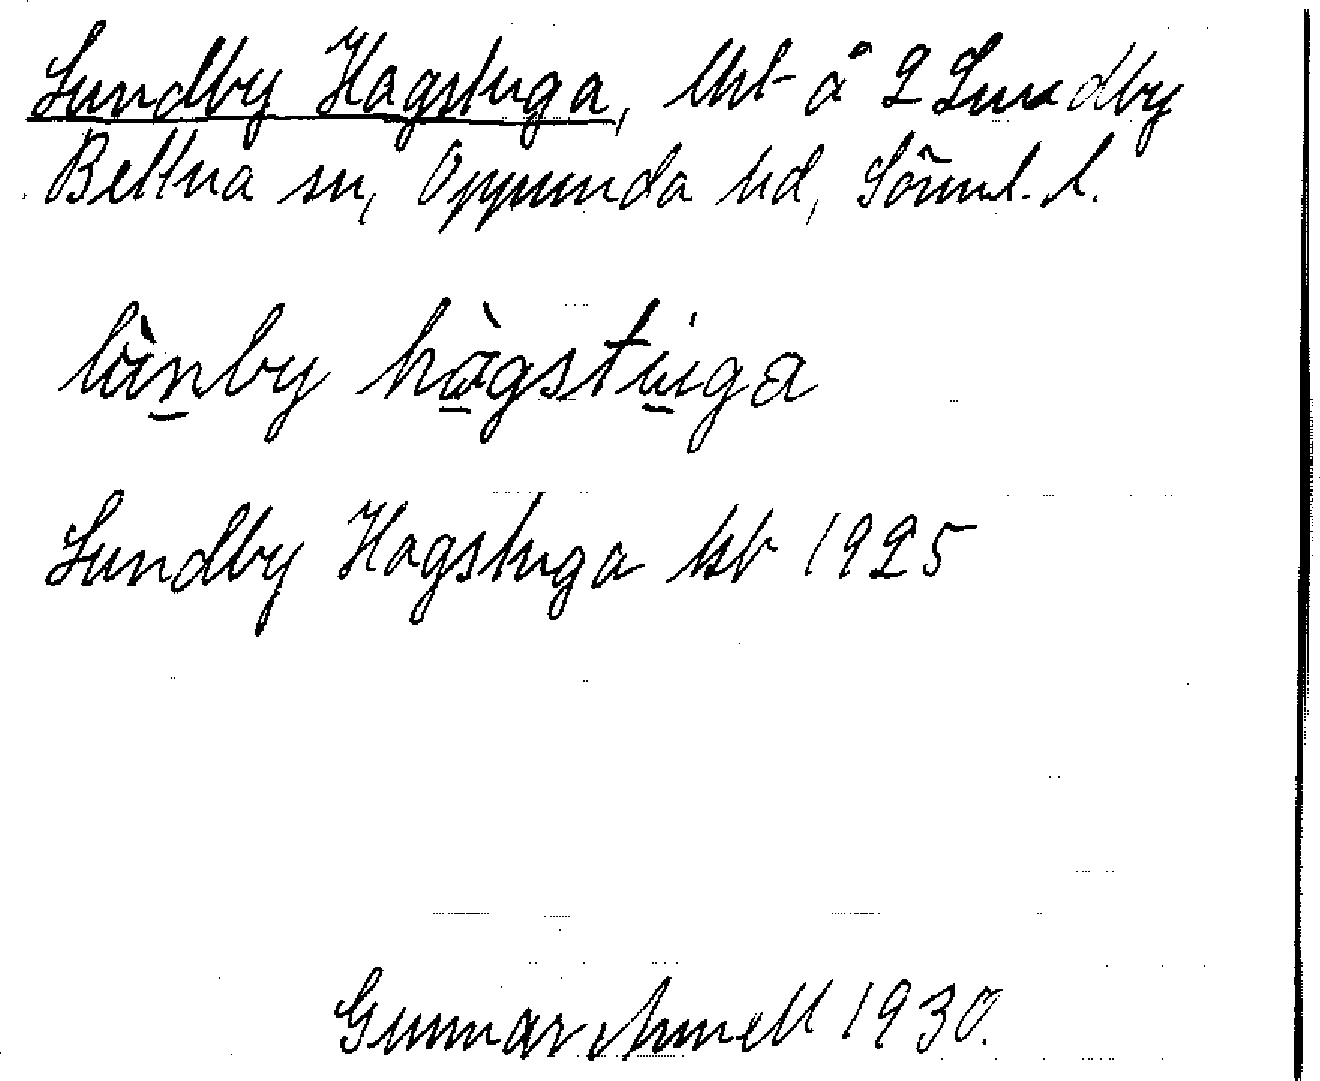 Lundby Hagstuga, lht å 2 Lundby
Bettna sn, Oppunda hd, Sörml. l.
hagstuga
Lundby Hagstuga 1925
Gunnar Amell 1930.